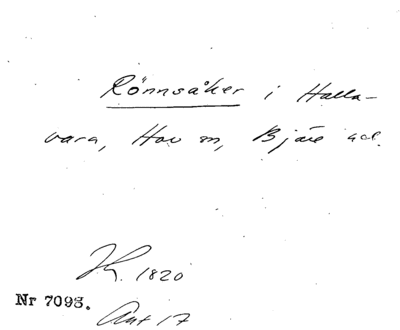 Rönnsåker i Halla-
vara, Hov sn, Bjäre hd.
Jk. 1820
Nr 7093.
Avt 17